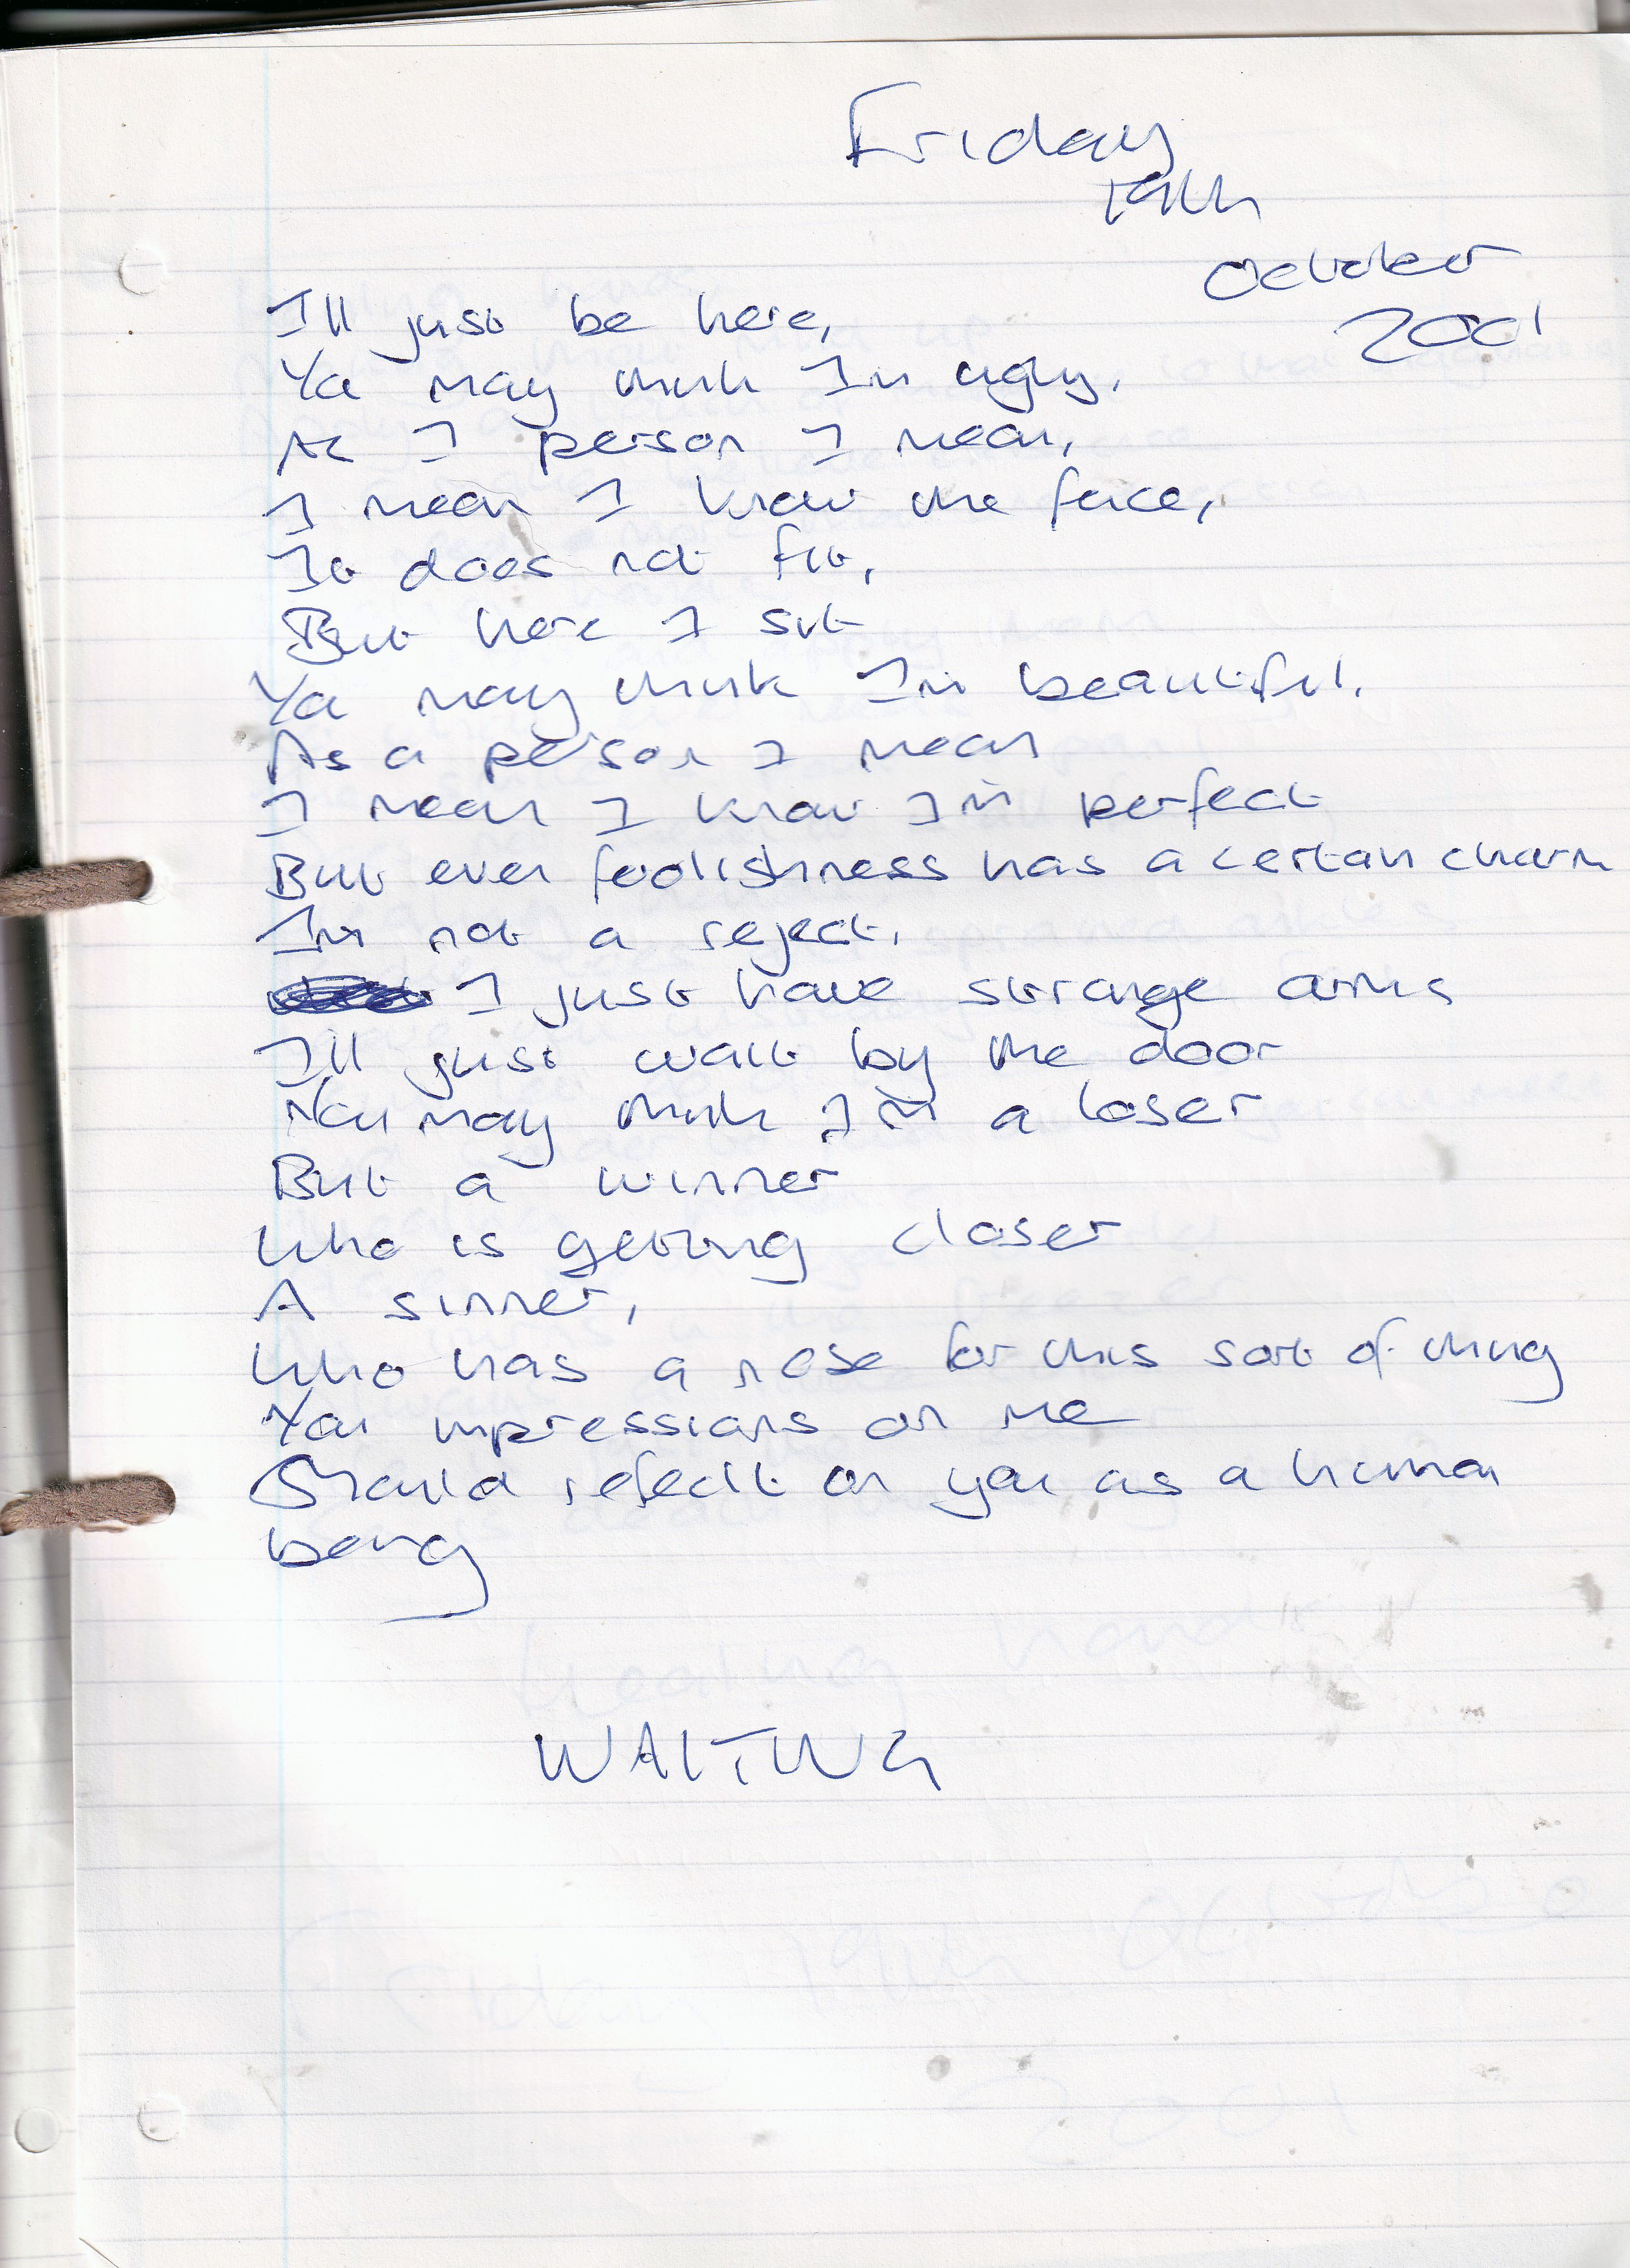 Friday
19th
October
2001
I'll just be here,
Ya may think Im ugly.
As I person I mean,
I mean I know the face,
It does not fit,
But here I sit
Ya may think I'm beautiful.
As a person I mean
I mean I know I'm perfect
But even foolishness has a certan charm
Im not a reject.
I just have strange arms
I'll just wait by the door
You may think I'm a loser
But a winner
Who is getting closer
A sinner,
Who has a nose for this sort of thing
Your impressions on me
Should refeclt on you as a human
being
WAITING